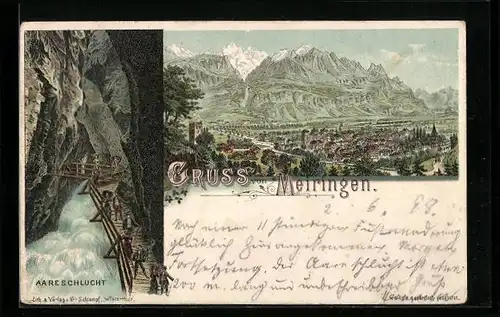 GRUSS aus Meiringen.
2. 6. 98
Nach einer 11 stündigen Fusswanderung
glücklich hier angekommen. Morgen
Fortsetzung, die Aareschlucht ist
200 m. lang und unbeschreiblich
AARESCHLUCHT
Lith. & Verlag v.